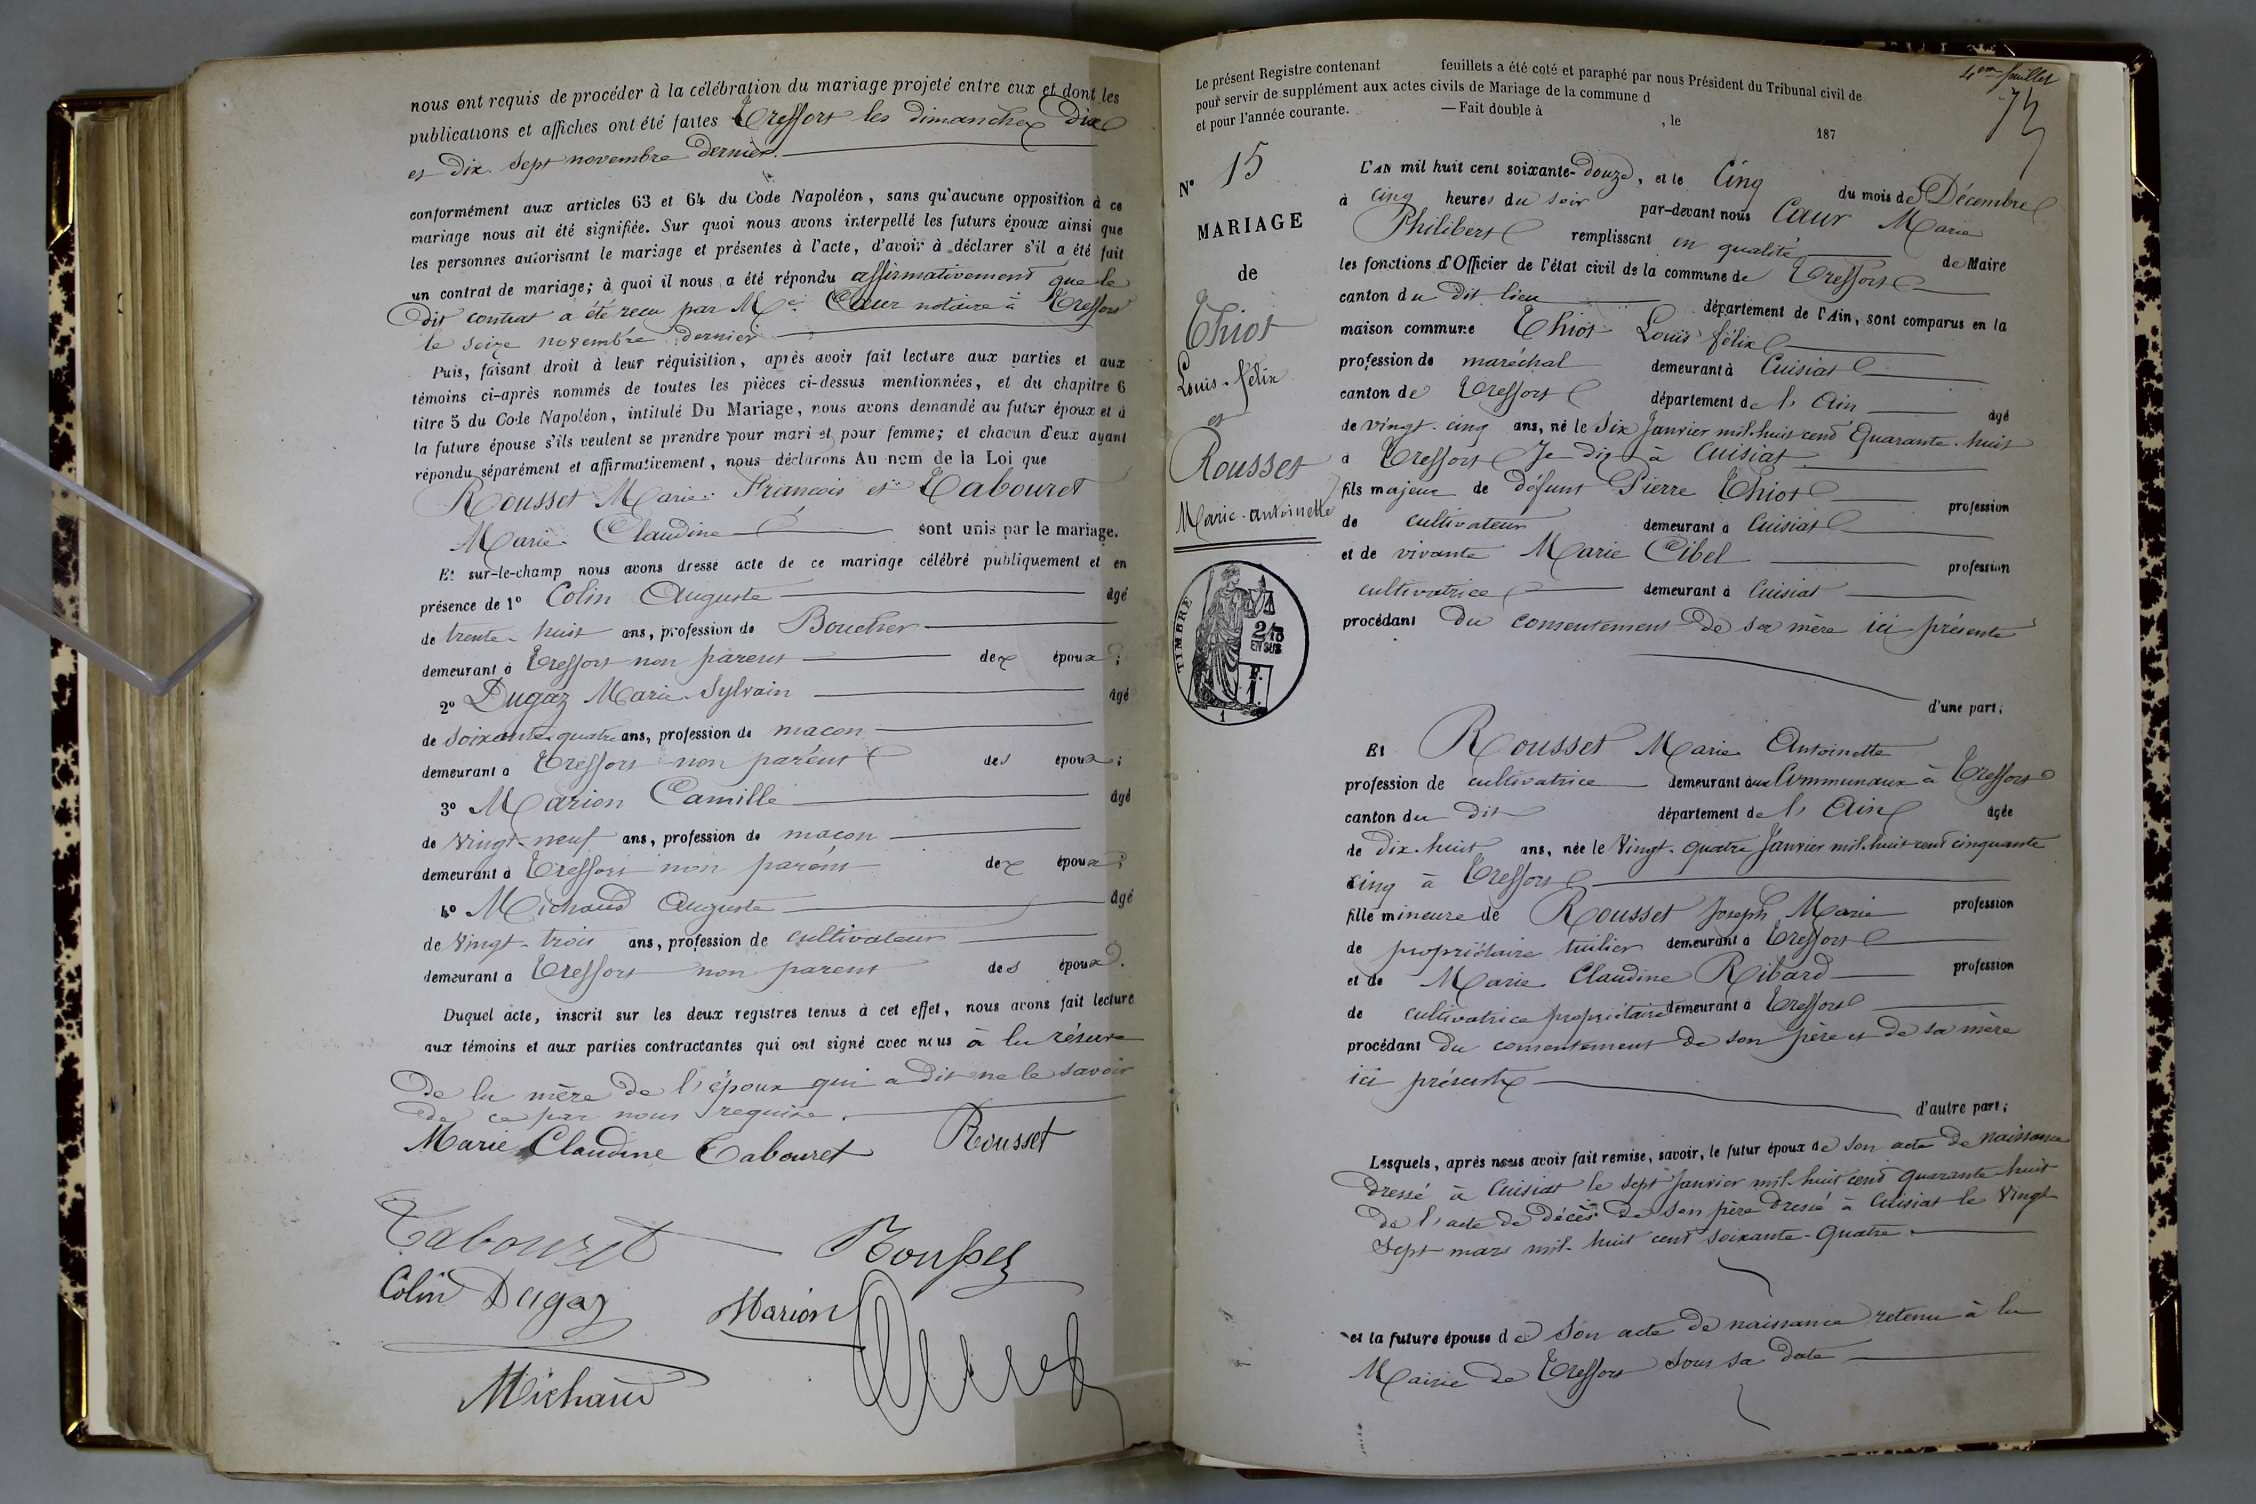 nous ont requis de procéder à la célébration du mariage projeté entre eux et dont les
publications et affiches ont été faites Treffort les dimanches Dix
et Dix Sept novembre Dernier.
conformément aux articles 63 et 64 du Code Napoléon, sans qu'aucune opposition à ce
mariage nous ait été signifiée. Sur quoi nous avons interpellé les futurs époux ainsi que
les personnes autorisant le mariage et présentes à l'acte, d'avoir à déclarer s'il a été fait
un contrat de mariage; à quoi il nous a été répondu affirmativement que le
Dit contrat a été reçu par Me Cœur notaire à Treffort
le seize novembre dernier
Puis, faisant droit à leur réquisition, après avoir fait lecture aux parties et aux
témoins ci-après nommés de toutes les pièces ci-dessus mentionnées, et du chapitre 6
titre 5 du Code Napoléon, intitulé Du Mariage, nous avons demandé au futur époux et à
la future épouse s'ils veulent se prendre pour mari et pour femme; et chacun d'eux ayant
répondu séparément et affirmativement, nous déclarons Au nom de la Loi que
Rousset Marie François et Tabouret
Marie Claudine sont unis par le mariage.
Et sur-le-champ nous avons dressé acte de ce mariage célébré publiquement et en
présence de 1° Colin Auguste âgé
de trente-huit ans, profession de Boucher
demeurant à Treffort non parent des époux;
2° Dugaz Marie Sylvain âgé
de soixante quatre ans, profession de maçon
demeurant à Treffort non parent des époux;
3° Marion Camille âgé
de vingt-neuf ans, profession de maçon
demeurant à Treffort non parent des époux;
4° Michaud Auguste âgé
de vingt-trois ans, profession de cultivateur
demeurant à Treffort non parent des époux.
Duquel acte, inscrit sur les deux registres tenus à cet effet, nous avons fait lecture
aux témoins et aux parties contractantes qui ont signé avec nous à la réserve
De la mère de l'époux qui a dit ne le savoir
de ce par nous requise.
Marie Claudine Tabouret Rousset
Tabouret Rousset
Colin Dugaz Marion
Michaud
4em feuillet
Le présent Registre contenant feuillets a été coté et paraphé par nous Président du Tribunal civil de
pour servir de supplément aux actes civils de Mariage de la commune d
et pour l'année courante. — Fait double à , le 187
N° 15
MARIAGE
de
Thiot
Louis-félix
et
Rousset
Marie-antoinette
TIMBRE
2/10
EN SUS
F.
1.
1
L'AN mil huit cent soixante-douze, et le Cinq du mois de Décembre
à cinq heures du soir par-devant nous Cœur Marie
Philibert remplissant en qualité de Maire
les fonctions d'Officier de l'état civil de la commune de Treffort
canton du dit lieu département de l'Ain, sont comparus en la
maison commune Thiot Louis félix
profession de maréchal demeurant à Cuisiat
canton de Treffort département de l'Ain âgé
de vingt-cinq ans, né le Six Janvier mil-huit cent Quarante-huit
à Treffort Je dis à Cuisiat
fils majeur de défunt Pierre Thiot profession
de cultivateur demeurant à Cuisiat
et de vivante Marie Cibel profession
cultivatrice demeurant à Cuisiat
procédant Du consentement De sa mère ici présente
d'une part;
Et Rousset Marie Antoinette
profession de cultivatrice demeurant aux Communaux à Treffort
canton du dit département de l'Ain âgée
de Dix-huit ans, née le Vingt-quatre Janvier mil-huit cent cinquante
cinq à Treffort
fille mineure de Rousset Joseph Marie profession
de propriétaire tuilier demeurant à Treffort
et de Marie Claudine Ribard profession
de cultivatrice propriétaire demeurant à Treffort
procédant Du consentement De son père et de sa mère
ici présents
d'autre part;
Lesquels, après nous avoir fait remise, savoir, le futur époux de son acte De naissance
dressé à Cuisiat le sept Janvier mil-huit cent quarante-huit
De l'acte de Décès De son père dressé à Cuisiat le vingt
Sept mars mil-huit cent soixante-Quatre.
et la future épouse de son acte De naissance retenu à la
Mairie de Treffort sous sa date